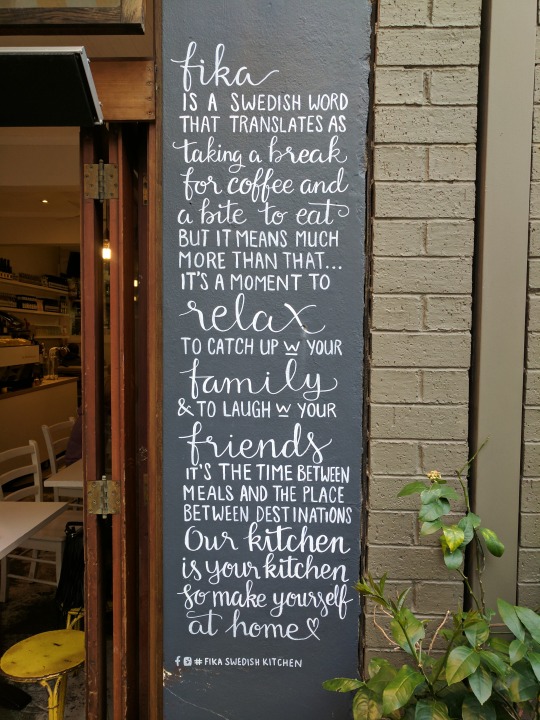 fika
IS A SWEDISH WORD
THAT TRANSLATES AS
taking a break
for coffee and
a bite to eat
BUT IT MEANS MUCH
MORE THAN THAT...
IT'S A MOMENT TO
relax
TO CATCH UP W YOUR
family
& TO LAUGH W YOUR
friends
IT'S THE TIME BETWEEN
MEALS AND THE PLACE
BETWEEN DESTINATIONS
Our kitchen
is your kitchen
so make yourself
at home
#FIKA SWEDISH KITCHEN